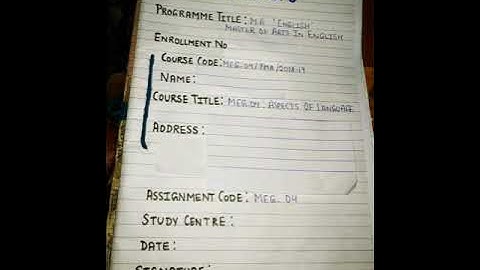 PROGRAMME TITLE: MA 'ENGLISH'
MASTER OF ARTS IN ENGLISH
ENROLLMENT NO
COURSE CODE: MEG.04/TMA/2018-19
NAME:
COURSE TITLE: MEG.04. ASPECTS OF LANGUAGE
ADDRESS:
ASSIGNMENT CODE: MEG-04
STUDY CENTRE:
DATE:
SIGNATURE: